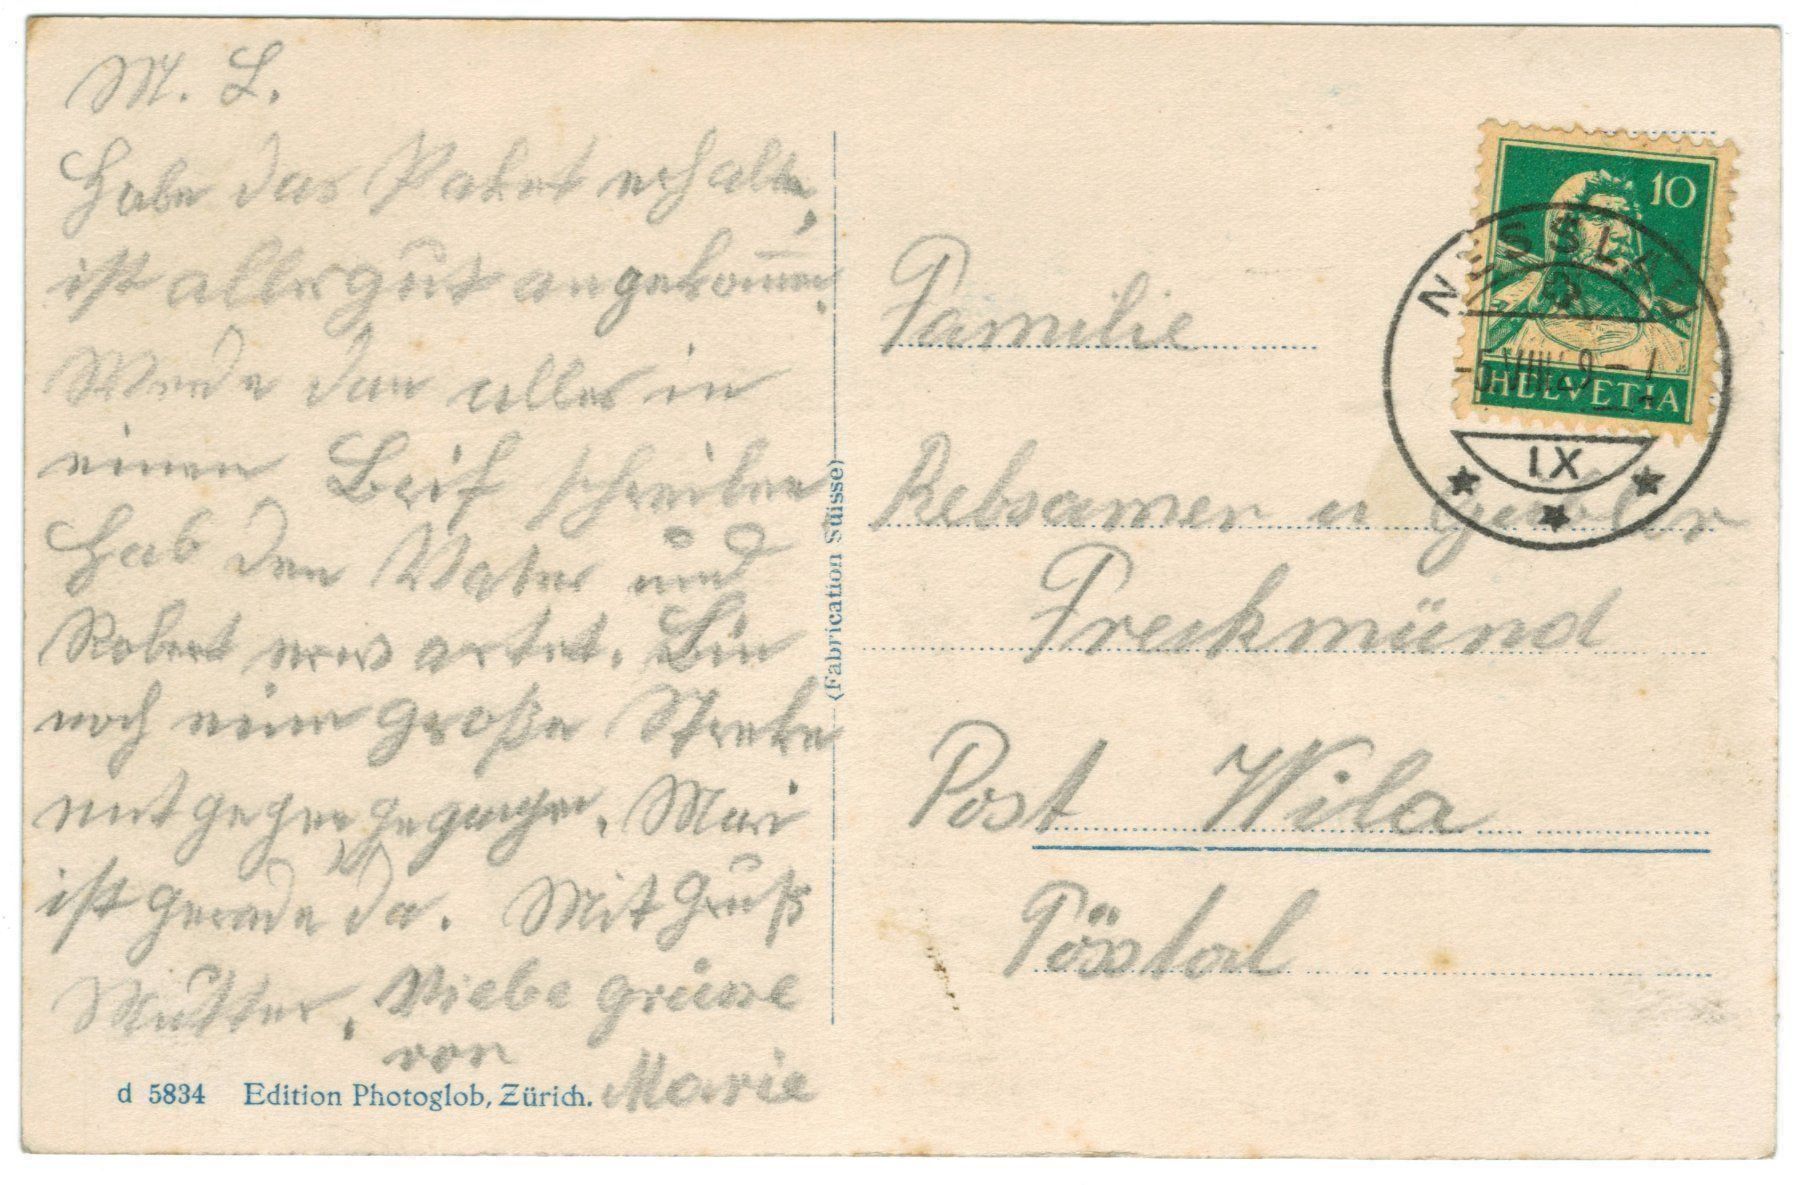 M. L.
Habe das Paket erhalten,
ist alles gut angekommen.
Werde dan alles in
einen Brif schreiben
Hab den Vater und
Robert erwartet. Bin
noch eine große Streke
entgegen gegangen. Mari
ist gerade da. Mit Gruß
Mutter. Viebe grüsse
von
Marie
d 5834 Edition Photoglob, Zürich.
(Fabrication Suisse)
10
HELVETIA
NESSLAU
-5.VIII.29-7
IX
Familie
Rebsamen u
Freckmünd
Post Wila
Tösstal